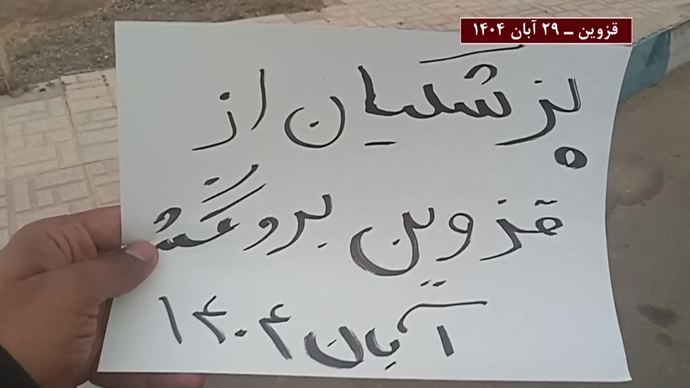 قزوین ــ ۲۹ آبان ۱۴۰۴
پزشکیان از
قزوین برو گمشو
آبان ۱۴۰۴